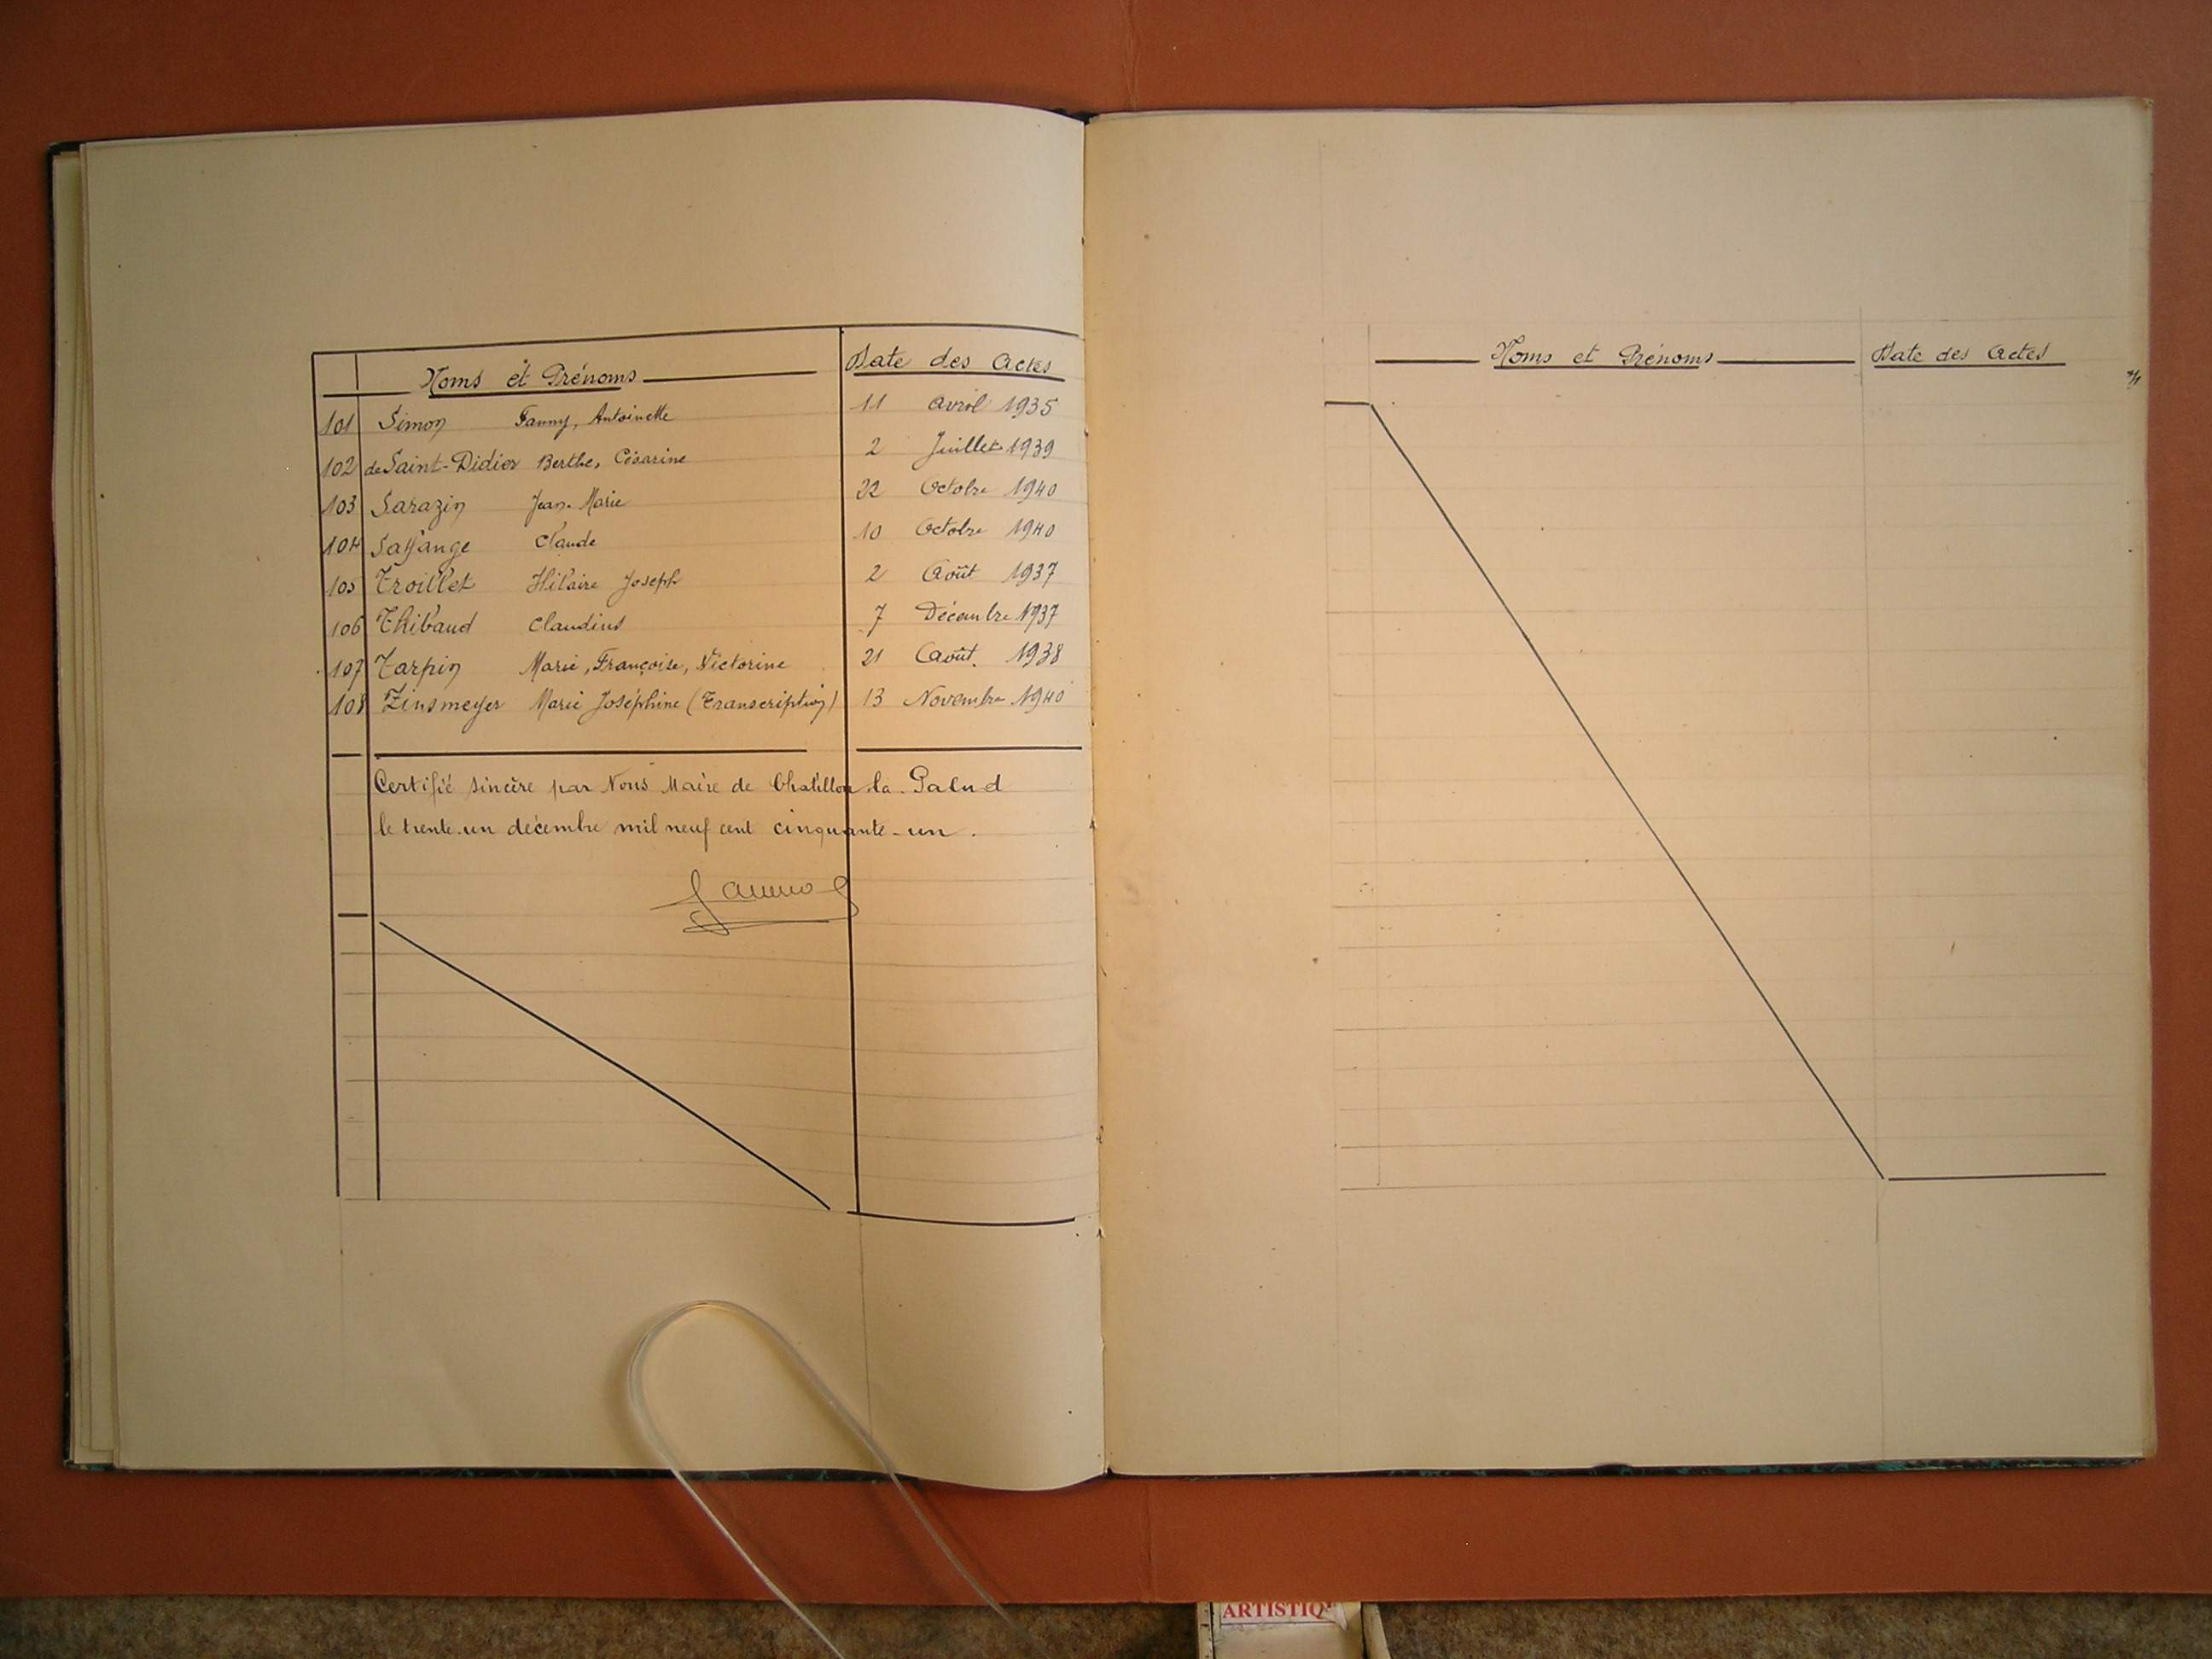 Noms et Prénoms Date des Actes
101 Simon Fanny, Antoinette 11 avril 1935
102 de Saint-Didier Berthe, Césarine 2 Juillet 1939
103 Sarazin Jean-Marie 22 Octobre 1940
104 Claude 10 Octobre 1940
105 Troillet Hilaire Joseph 2 Août 1937
106 Thibaud Claudius 7 Décembre 1937
107 Tarpin Marie, Françoise, Victorine 21 Août. 1938
108 Zinsmeyer Marie Joséphine (Transcription) 13 Novembre 1940
Certifié sincère par Nous Maire de Chatillon-la-Palud
le trente-un décembre mil neuf cent cinquante-un.
Noms et Prénoms Date des Actes
ARTISTIQ